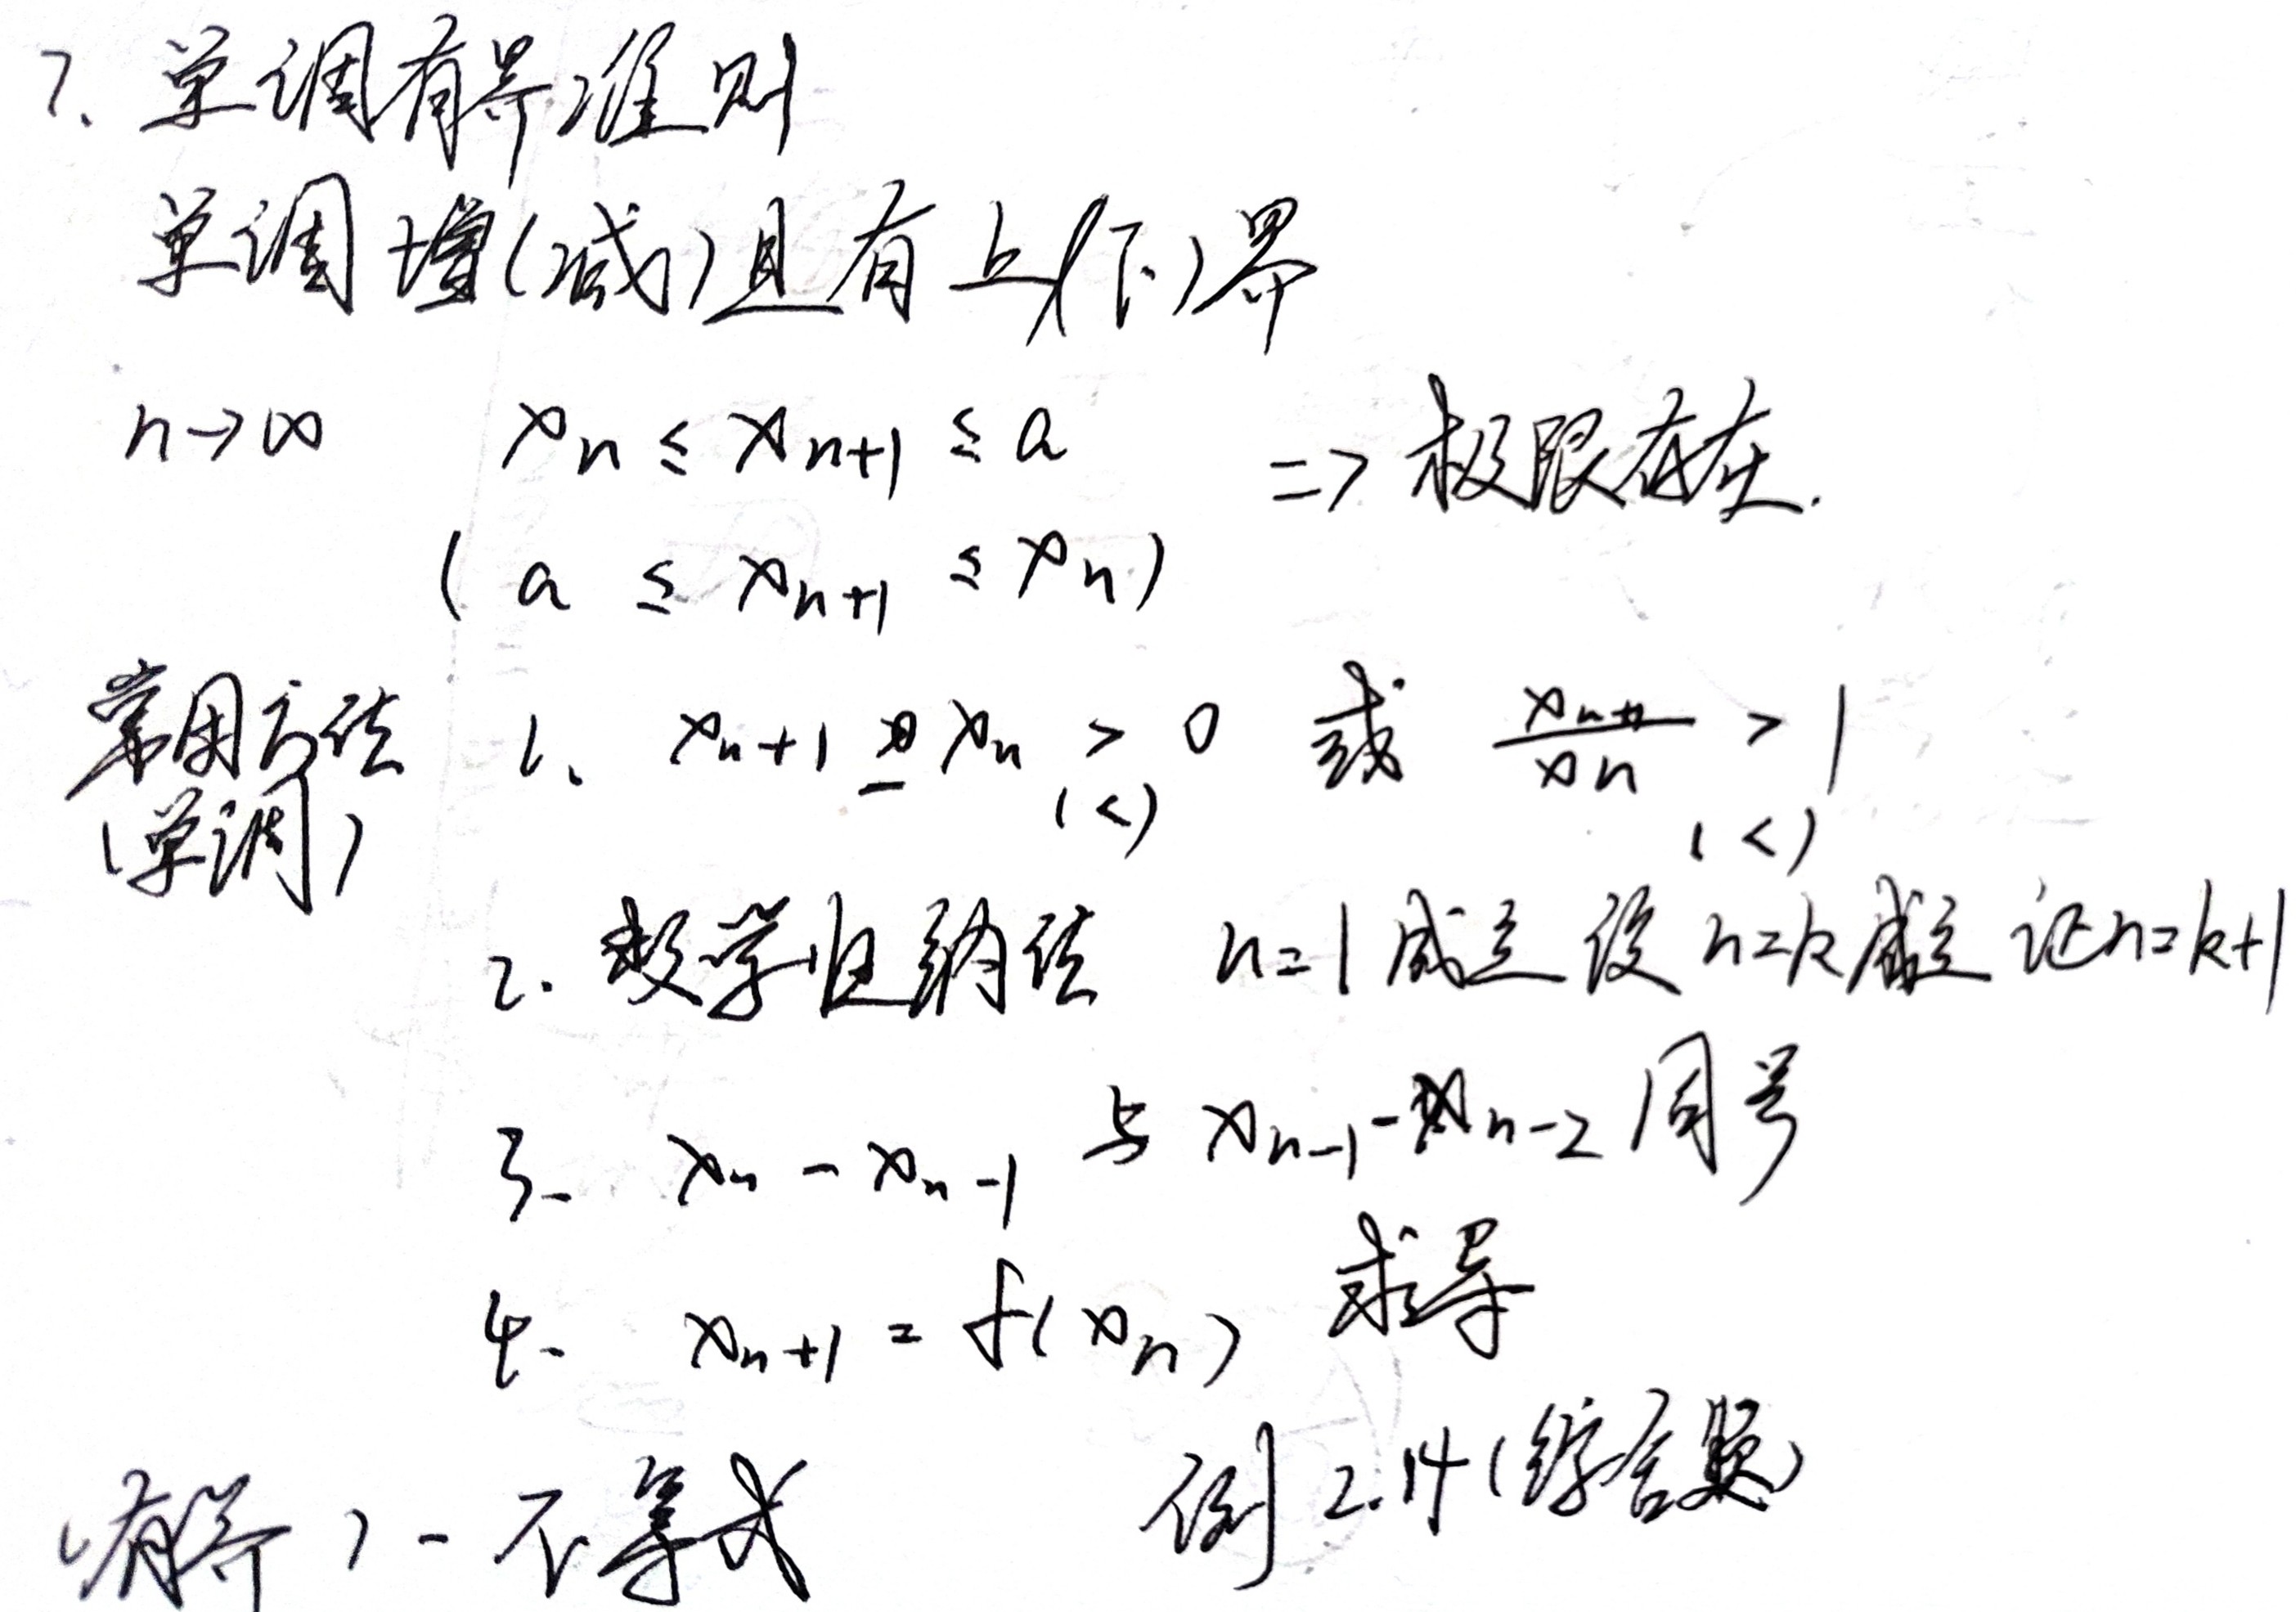 7. 单调有界准则
单调增(减)且有上(下)界
n→∞ xn ≤ xn+1 ≤ a => 极限存在.
(a ≤ xn+1 ≤ xn)
常用方法 1. xn+1 - xn > 0 或 xn+1/xn > 1
(单调) (<) (<)
2. 数学归纳法 n=1成立 设n=k成立 证n=k+1
3. xn - xn-1 与 xn-1 - xn-2 同号
4. xn+1 = f(xn) 求导
(有界) - 不等式 例2.14(综合题)